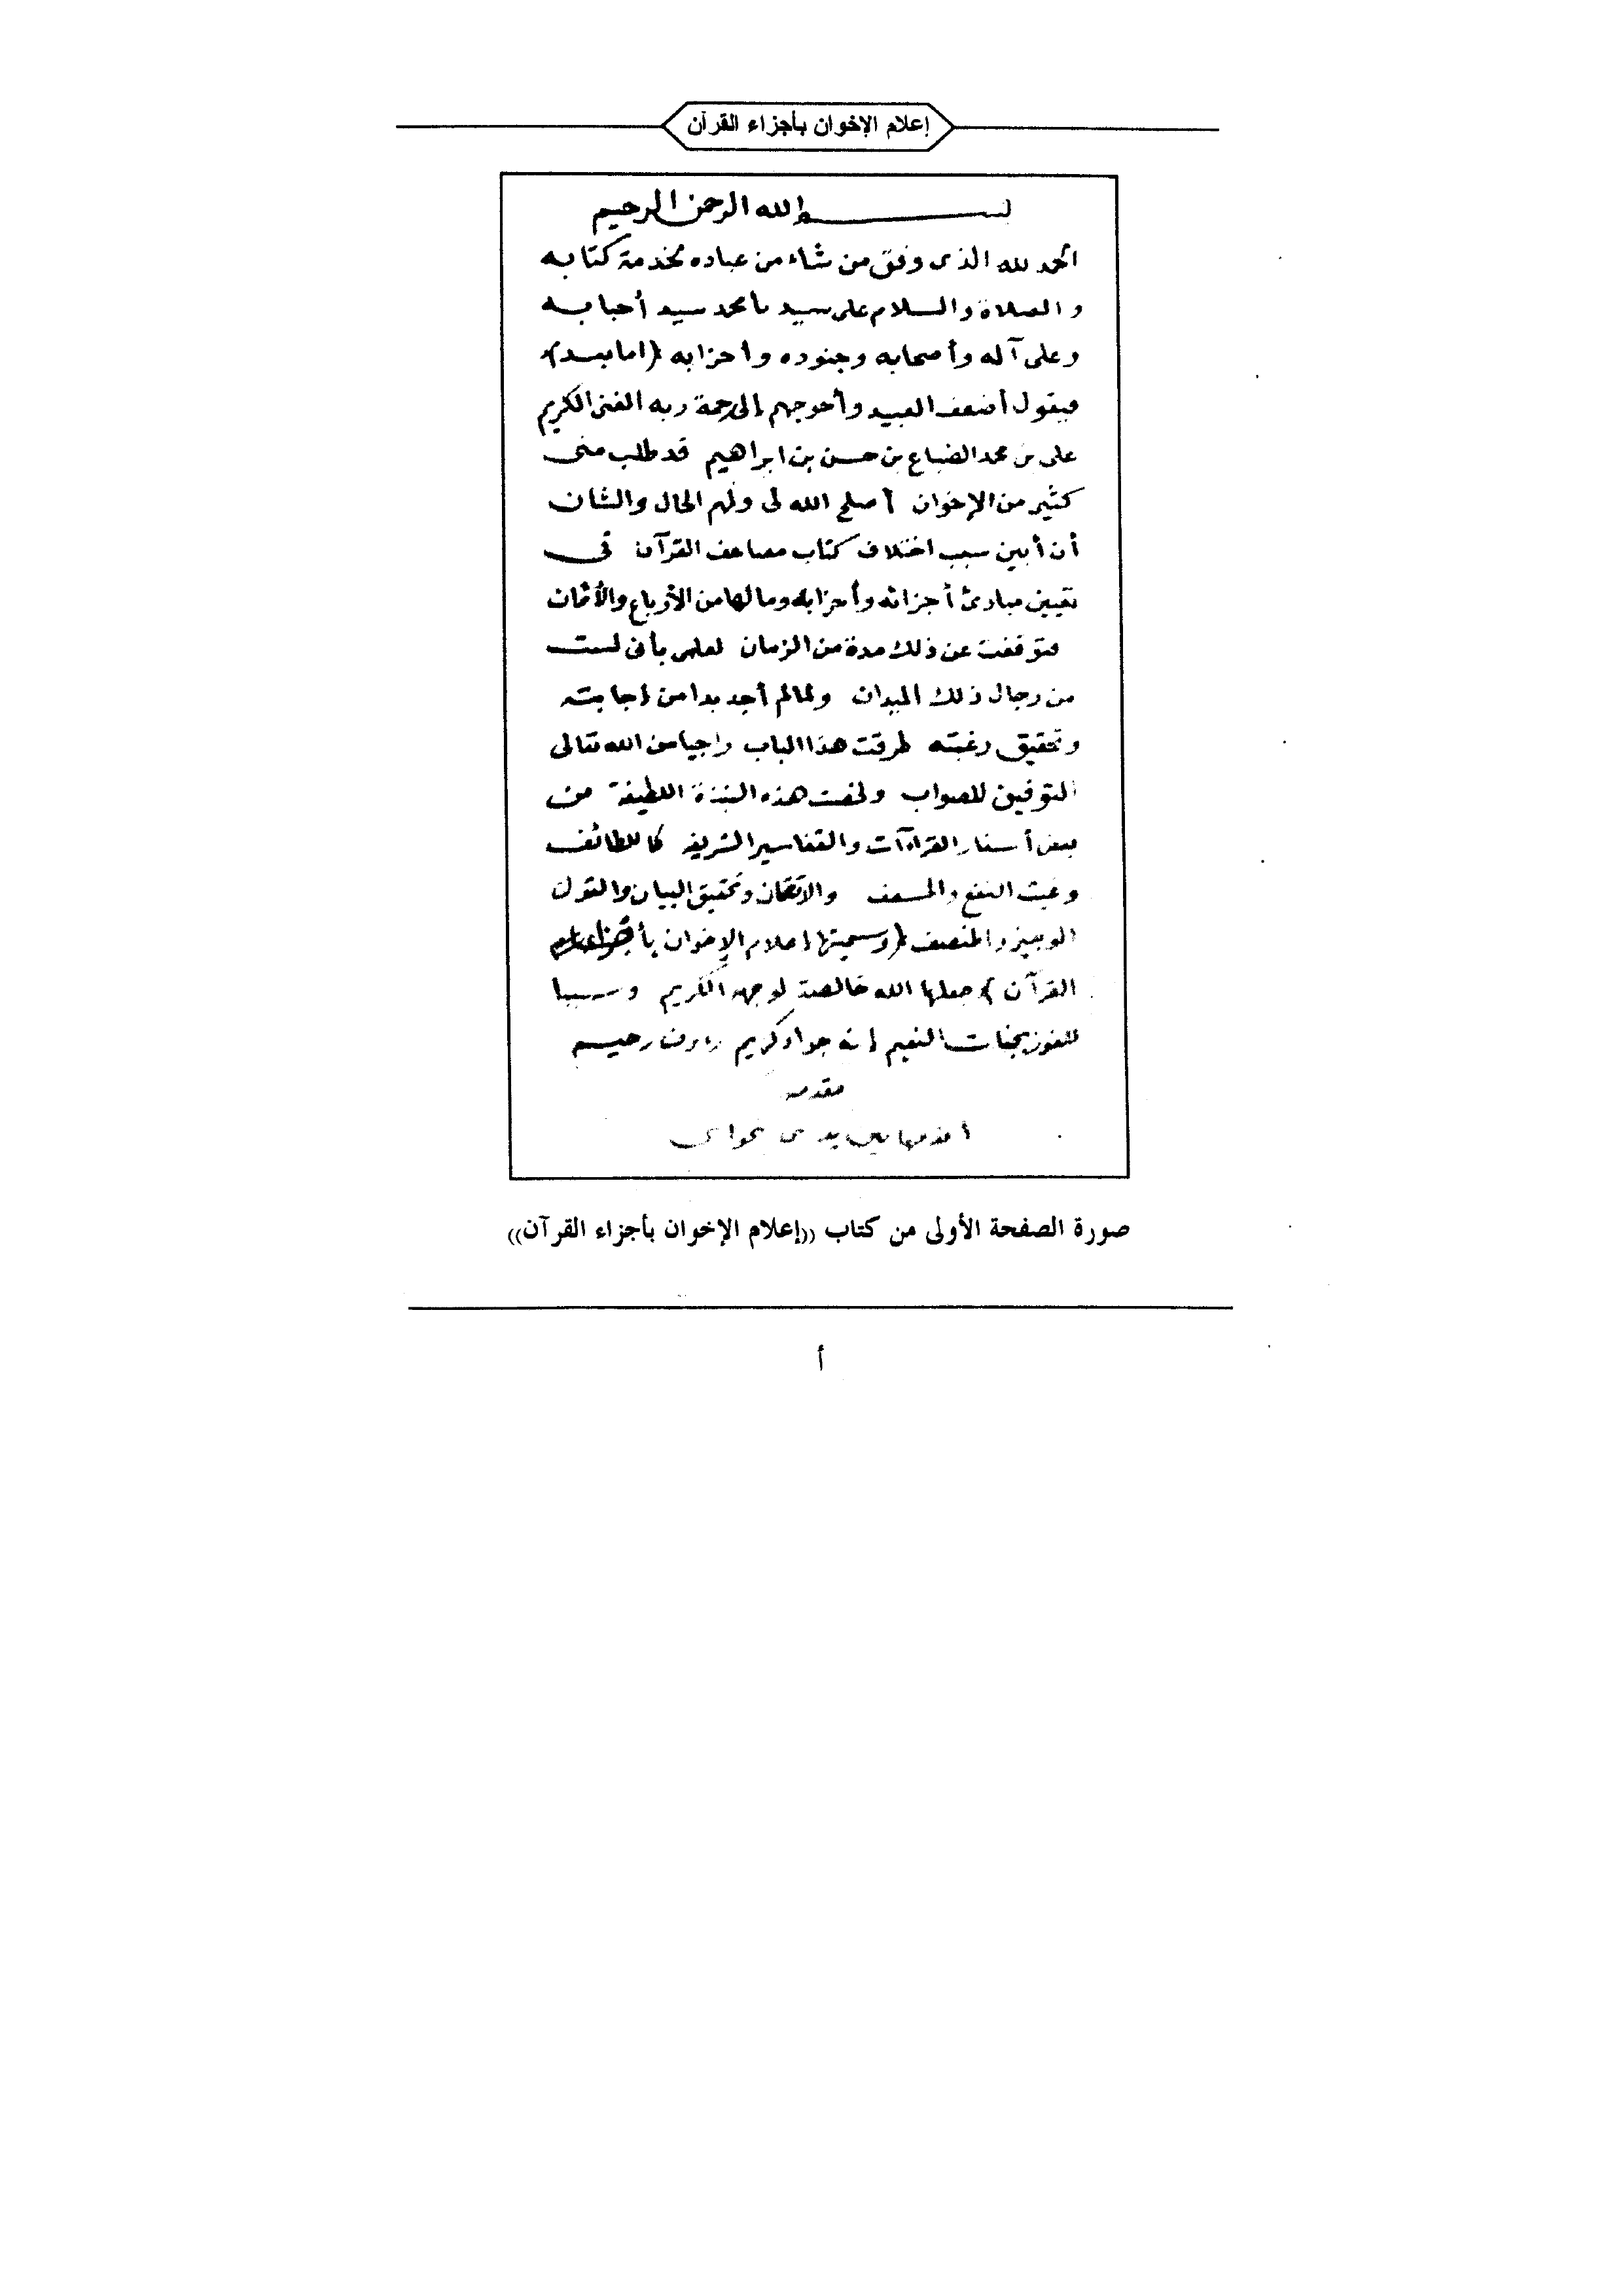 إعلام الإخوان بأجزاء القرآن
بسم الله الرحمن الرحيم
الحمد لله الذى وفق من شاء من عباده لخدمة كتابه
والصلاة والسلام على سيدنا محمد سيد أحبابه
وعلى آله وأصحابه وجنوده وأحزابه (اما بعد)
فيقول أضعف العبيد وأحوجهم إلى رحمة ربه الغنى الكريم
على بن محمد الضباع بن حسن بن ابراهيم قد طلب منى
كثير من الإخوان أصلح الله لى ولهم الحال والشان
أن أبين سبب اختلاف كتاب مصاحف القرآن فى
تعيين مبادئ أجزائه وأحزابه وما لها من الأرباع والأثمان
فتوقفت عن ذلك مدة من الزمان لعلمى بأنى لست
من رجال ذلك الميدان ولما لم أجد بدا من إجابته
وتحقيق رغبته طرقت هذا الباب راجيا من الله تعالى
التوفيق للصواب ولخصت هذه النبذة اللطيفة من
بعض أسفار القراءآت والتفاسير الشريفه كاللطائف
وغيث النفع والمسعف والاتقان وتحقيق البيان والقول
الوجيز والمنصف (وسميتها إعلام الإخوان بأجزاء
القرآن) جعلها الله خالصة لوجهه الكريم وسببا
للفوز بجنات النعيم إنه جواد كريم رءوف رحيم
مقدمه
أقدمها بين يدى
صورة الصفحة الأولى من كتاب ((إعلام الإخوان بأجزاء القرآن))
أ